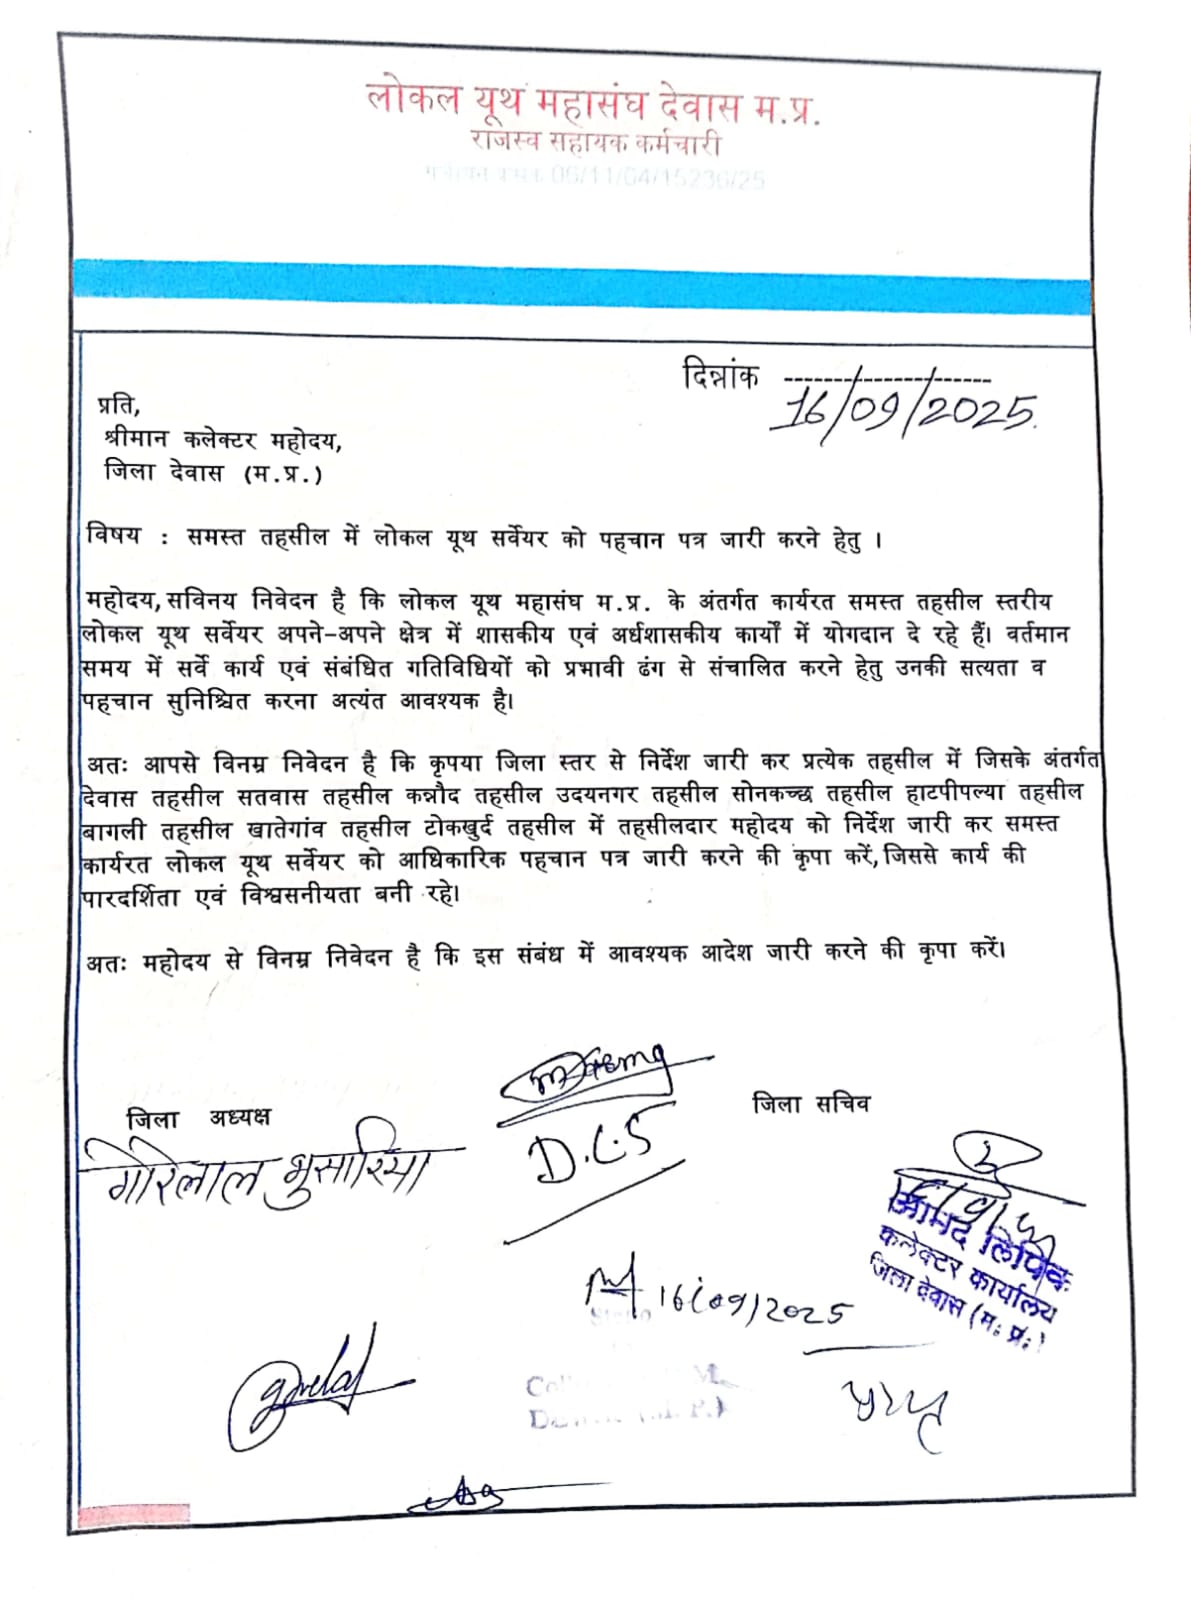 लोकल यूथ महासंघ देवास म.प्र.
राजस्व सहायक कर्मचारी
06/11/04/15236/25
दिन्नांक --------------------
16/09/2025.
प्रति,
श्रीमान कलेक्टर महोदय,
जिला देवास (म.प्र.)
विषय : समस्त तहसील में लोकल यूथ सर्वेयर को पहचान पत्र जारी करने हेतु ।
महोदय,सविनय निवेदन है कि लोकल यूथ महासंघ म.प्र. के अंतर्गत कार्यरत समस्त तहसील स्तरीय
लोकल यूथ सर्वेयर अपने-अपने क्षेत्र में शासकीय एवं अर्धशासकीय कार्यों में योगदान दे रहे हैं। वर्तमान
समय में सर्वे कार्य एवं संबंधित गतिविधियों को प्रभावी ढंग से संचालित करने हेतु उनकी सत्यता व
पहचान सुनिश्चित करना अत्यंत आवश्यक है।
अतः आपसे विनम्र निवेदन है कि कृपया जिला स्तर से निर्देश जारी कर प्रत्येक तहसील में जिसके अंतर्गत
देवास तहसील सतवास तहसील कन्नौद तहसील उदयनगर तहसील सोनकच्छ तहसील हाटपीपल्या तहसील
बागली तहसील खातेगांव तहसील टोकखुर्द तहसील में तहसीलदार महोदय को निर्देश जारी कर समस्त
कार्यरत लोकल यूथ सर्वेयर को आधिकारिक पहचान पत्र जारी करने की कृपा करें,जिससे कार्य की
पारदर्शिता एवं विश्वसनीयता बनी रहे।
अतः महोदय से विनम्र निवेदन है कि इस संबंध में आवश्यक आदेश जारी करने की कृपा करें।
जिला अध्यक्ष
जिला सचिव
गोरेलाल भुसारिया
D.L.S
आमद लिपिक
कलेक्टर कार्यालय
जिला देवास (म.प्र.)
16/09/2025